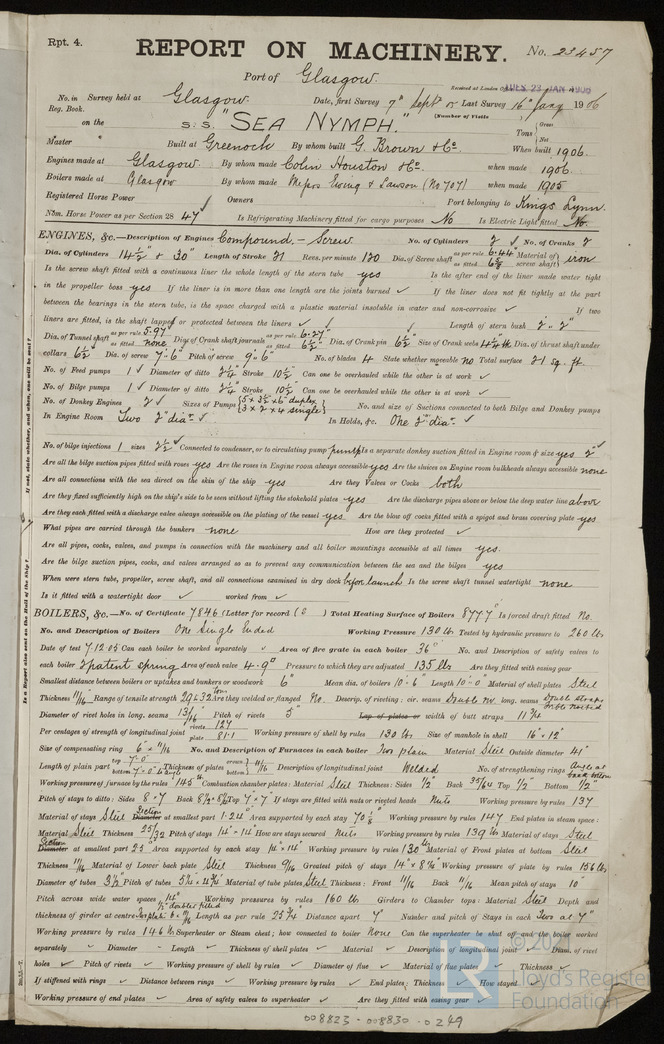 Rpt. 4.
REPORT ON MACHINERY. No. 23457
Port of Glasgow.
Received at London Office TUES 23 JAN 1906
No. in Reg. Book. Survey held at Glasgow. Date, first Survey 7th Sept 05 Last Survey 16th Jany 1906
(Number of Visits
on the S.S. "SEA NYMPH." Tons { Gross Net
Master Built at Greenock By whom built G. Brown & Co. When built 1906.
Engines made at Glasgow. By whom made Colin Houston & Co. when made 1906.
Boilers made at Glasgow By whom made Messrs Ewing & Lawson (No. 707) when made 1905
Registered Horse Power Owners Port belonging to Kings Lynn.
Nom. Horse Power as per Section 28 47 Is Refrigerating Machinery fitted for cargo purposes No Is Electric Light fitted No.
ENGINES, &c.—Description of Engines Compound - Screw No. of Cylinders 2 No. of Cranks 2
Dia. of Cylinders 14½ & 30 Length of Stroke 21 Revs. per minute 120 Dia. of Screw shaft as per rule 6.44 as fitted 6⅝ Material of screw shaft iron
Is the screw shaft fitted with a continuous liner the whole length of the stern tube yes Is the after end of the liner made water tight
in the propeller boss yes If the liner is in more than one length are the joints burned ✓ If the liner does not fit tightly at the part
between the bearings in the stern tube, is the space charged with a plastic material insoluble in water and non-corrosive ✓ If two
liners are fitted, is the shaft lapped or protected between the liners ✓ Length of stern bush 2'-2"
Dia. of Tunnel shaft as per rule 5.97 as fitted none Dia. of Crank shaft journals as per rule 6.27 as fitted 6½ Dia. of Crank pin 6½ Size of Crank webs Dia. of thrust shaft under
collars 6½ Dia. of screw 7'-6" Pitch of screw 9'-6" No. of blades 4 State whether moveable no Total surface 21 sq. ft.
No. of Feed pumps 1 Diameter of ditto 2¼ Stroke 10½ Can one be overhauled while the other is at work ✓
No. of Bilge pumps 1 Diameter of ditto 2¼ Stroke 10½ Can one be overhauled while the other is at work ✓
No. of Donkey Engines 2 Sizes of Pumps {5 x 3½ x 6 duplex 3 x 2 x 4 single} No. and size of Suctions connected to both Bilge and Donkey pumps
In Engine Room Two 2" dia. In Holds, &c. One 2" dia.
No. of bilge injections 1 sizes 2½ Connected to condenser, or to circulating pump pump Is a separate donkey suction fitted in Engine room & size yes 2"
Are all the bilge suction pipes fitted with roses yes Are the roses in Engine room always accessible yes Are the sluices on Engine room bulkheads always accessible none
Are all connections with the sea direct on the skin of the ship yes Are they Valves or Cocks both
Are they fixed sufficiently high on the ship's side to be seen without lifting the stokehold plates yes Are the discharge pipes above or below the deep water line above
Are they each fitted with a discharge valve always accessible on the plating of the vessel yes Are the blow off cocks fitted with a spigot and brass covering plate yes
What pipes are carried through the bunkers none How are they protected ✓
Are all pipes, cocks, valves, and pumps in connection with the machinery and all boiler mountings accessible at all times yes.
Are the bilge suction pipes, cocks, and valves arranged so as to prevent any communication between the sea and the bilges yes
When were stern tube, propeller, screw shaft, and all connections examined in dry dock before launch Is the screw shaft tunnel watertight none
Is it fitted with a watertight door ✓ worked from ✓
BOILERS, &c.—No. of Certificate 7846 (Letter for record (S) Total Heating Surface of Boilers 877.7 Is forced draft fitted No.
No. and Description of Boilers One Single Ended Working Pressure 130 lb Tested by hydraulic pressure to 260 lb
Date of test 7.12.05 Can each boiler be worked separately ✓ Area of fire grate in each boiler 36 No. and Description of safety valves to
each boiler 2 patent spring Area of each valve 4.9 Pressure to which they are adjusted 135 lbs Are they fitted with easing gear
Smallest distance between boilers or uptakes and bunkers or woodwork 6" Mean dia. of boilers 10'-6" Length 10'-0" Material of shell plates Steel
Thickness 11/16 Range of tensile strength 29&32 tons Are they welded or flanged No. Descrip. of riveting: cir. seams Double riv. long. seams Double straps
Diameter of rivet holes in long. seams 13/16 Pitch of rivets 5" Lap of plates or width of butt straps 11¾
Per centages of strength of longitudinal joint rivets 127 plate 81.1 Working pressure of shell by rules 130 lbs Size of manhole in shell 16" x 12"
Size of compensating ring 6" x 11/16 No. and Description of Furnaces in each boiler Two plain Material Steel Outside diameter 41"
Length of plain part top 7'-0" bottom 7'-0" to angle Thickness of plates crown bottom 11/16 Description of longitudinal joint Welded No. of strengthening rings Angle at back bottom
Working pressure of furnace by the rules 145 lb Combustion chamber plates: Material Steel Thickness: Sides ½" Back 35/64 Top ½" Bottom ½"
Pitch of stays to ditto: Sides 8 x 7 Back 8½ x 8½ Top 7 x 7 If stays are fitted with nuts or riveted heads Nuts Working pressure by rules 137
Material of stays Steel Section Diameter at smallest part 1.24 Area supported by each stay 70⅛ Working pressure by rules 147 End plates in steam space:
Material Steel Thickness 25/32 Pitch of stays 14" x 14" How are stays secured Nuts Working pressure by rules 139 lb Material of stays Steel
Section Diameter at smallest part Area supported by each stay 14" x 14" Working pressure by rules 130 lb Material of Front plates at bottom Steel
Thickness 11/16 Material of Lower back plate Steel Thickness 9/16 Greatest pitch of stays Working pressure of plate by rules 156 lb
Diameter of tubes 3½ Pitch of tubes Material of tube plates Steel Thickness: Front 11/16 Back 11/16 Mean pitch of stays 10"
Pitch across wide water spaces 14" Working pressures by rules 160 lb Girders to Chamber tops: Material Steel Depth and
thickness of girder at centre Length as per rule 25¾ Distance apart 7" Number and pitch of Stays in each Two at 7"
Working pressure by rules 146 lb Superheater or Steam chest; how connected to boiler None Can the superheater be shut off and the boiler worked
separately ✓ Diameter - Length ✓ Thickness of shell plates ✓ Material ✓ Description of longitudinal joint ✓ Diam. of rivet
holes ✓ Pitch of rivets ✓ Working pressure of shell by rules ✓ Diameter of flue ✓ Material of flue plates ✓ Thickness ✓
If stiffened with rings ✓ Distance between rings ✓ Working pressure by rules ✓ End plates: Thickness ✓ How stayed ✓
Working pressure of end plates ✓ Area of safety valves to superheater ✓ Are they fitted with easing gear ✓
If not, state whether, and when, one will be sent?
Is a Report also sent on the Hull of the Ship?
© 2021
Lloyd's Register
Foundation
008823-008830-0249